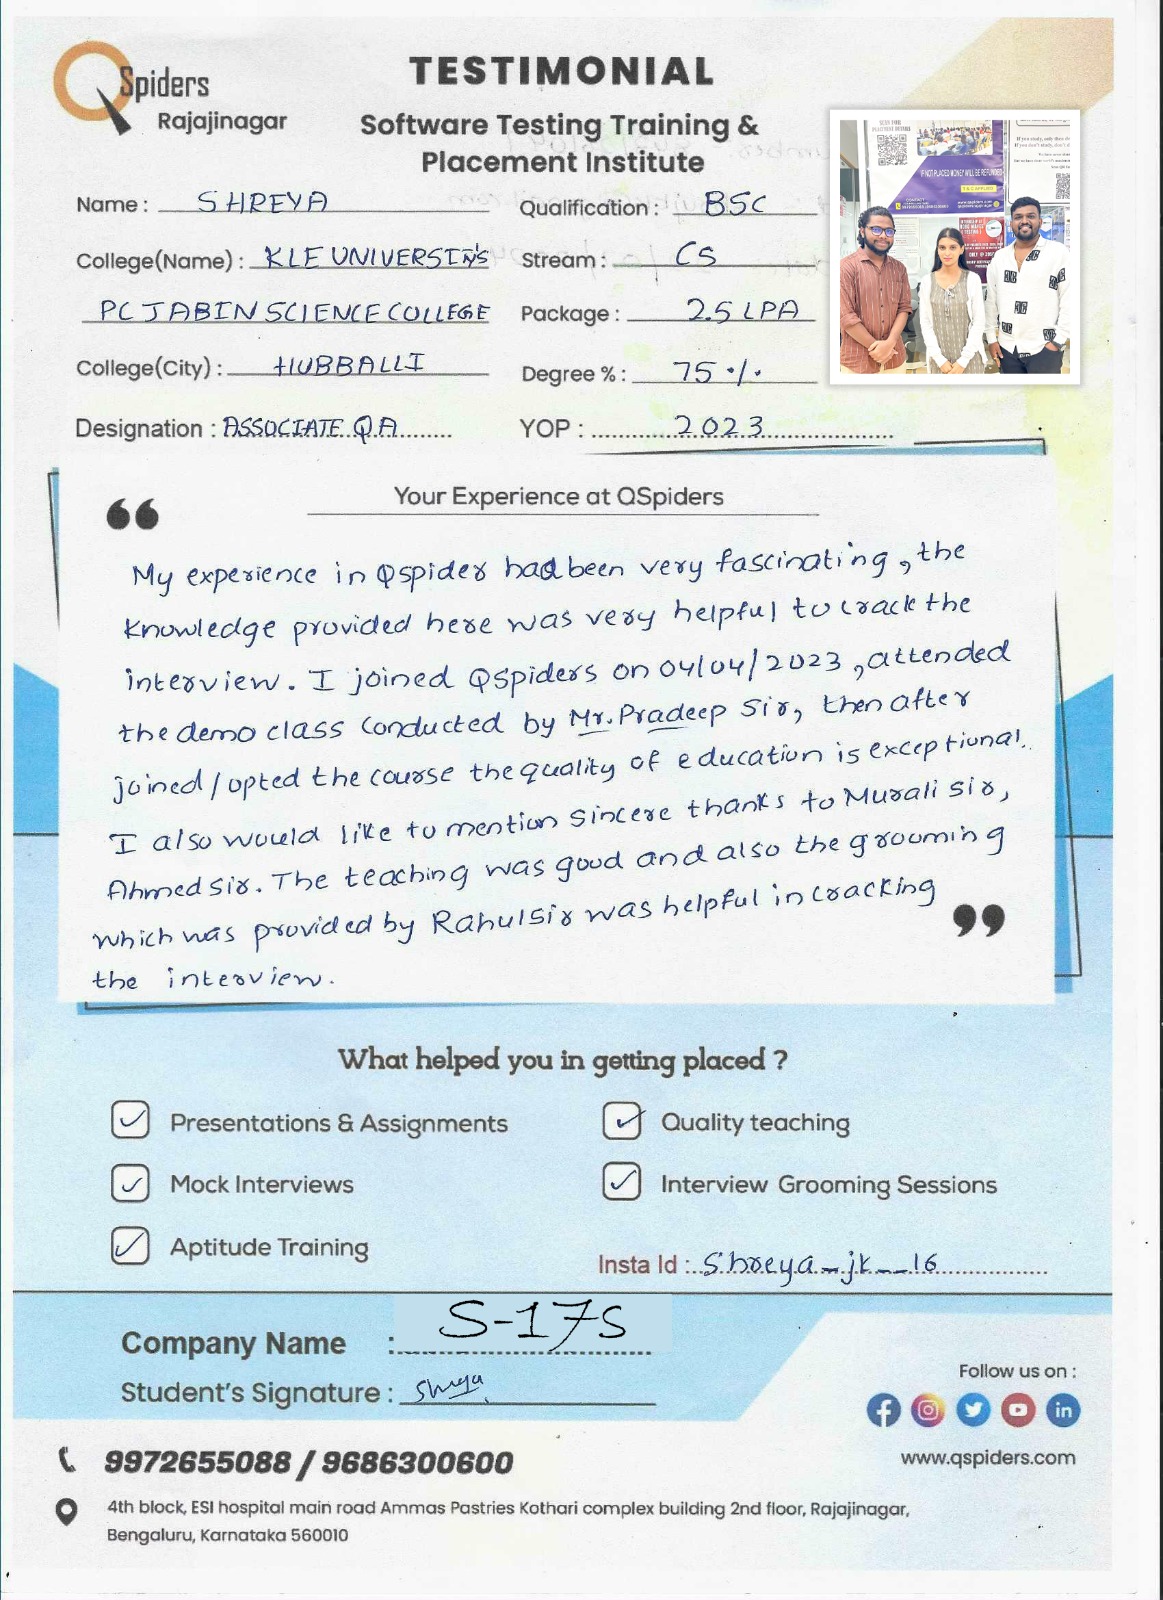 QSpiders
Rajajinagar
TESTIMONIAL
Software Testing Training &
Placement Institute
Name : SHREYA
Qualification : BSC
College(Name) : KLE UNIVERSITY'S
Stream : CS
PC JABIN SCIENCE COLLEGE
Package : 2.5 LPA
College(City) : HUBBALLI
Degree % : 75 %
Designation : ASSOCIATE QA
YOP : 2023
IF NOT PLACED MONEY WILL BE REFUNDED
Your Experience at QSpiders
My experience in Qspider had been very fascinating, the
knowledge provided here was very helpful to crack the
interview. I joined QSpiders on 04/04/2023, attended
the demo class conducted by Mr. Pradeep Sir, then after
joined/opted the course the quality of education is exceptional.
I also would like to mention sincere thanks to Murali sir,
Ahmed sir. The teaching was good and also the grooming
which was provided by Rahul Sir was helpful in cracking
the interview.
What helped you in getting placed ?
Presentations & Assignments
Quality teaching
Mock Interviews
Interview Grooming Sessions
Aptitude Training
Insta Id : Shreya_jk__16
Company Name : S-17S
Student's Signature : Shreya
Follow us on :
9972655088 / 9686300600
www.qspiders.com
4th block, ESI hospital main road Ammas Pastries Kothari complex building 2nd floor, Rajajinagar,
Bengaluru, Karnataka 560010